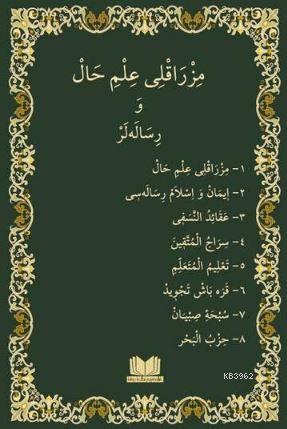 مِزْرَاقْلِى عِلْمِ حَالْ
وَ
رِسَالَه‌لَرْ
١- مِزْرَاقْلِى عِلْمِ حَالْ
٢- اِيمَانْ وَ اِسْلَامْ رِسَالَه‌سِى
٣- عَقَائِدُ النَّسَفِى
٤- سِرَاجُ الْمُتَّقِينَ
٥- تَعْلِيمُ الْمُتَعَلِّمِ
٦- قَرَه بَاشْ تَجْوِيدْ
٧- سُبْحَةِ صِبْيَانْ
٨- حِزْبُ الْبَحْر
KB3962